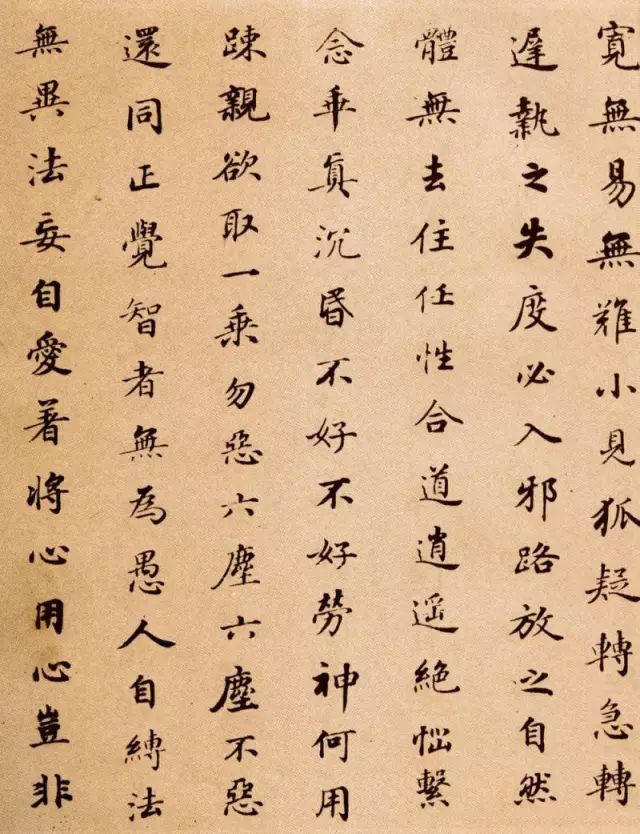 寬無易無難小見狐疑轉急轉
遲執之失度必入邪路放之自然
體無去住任性合道逍遥絶惱繫
念乖真沉昏不好不好勞神何用
踈親欲取一乘勿惡六塵六塵不惡
還同正覺智者無為愚人自縛法
無異法妄自愛著將心用心豈非